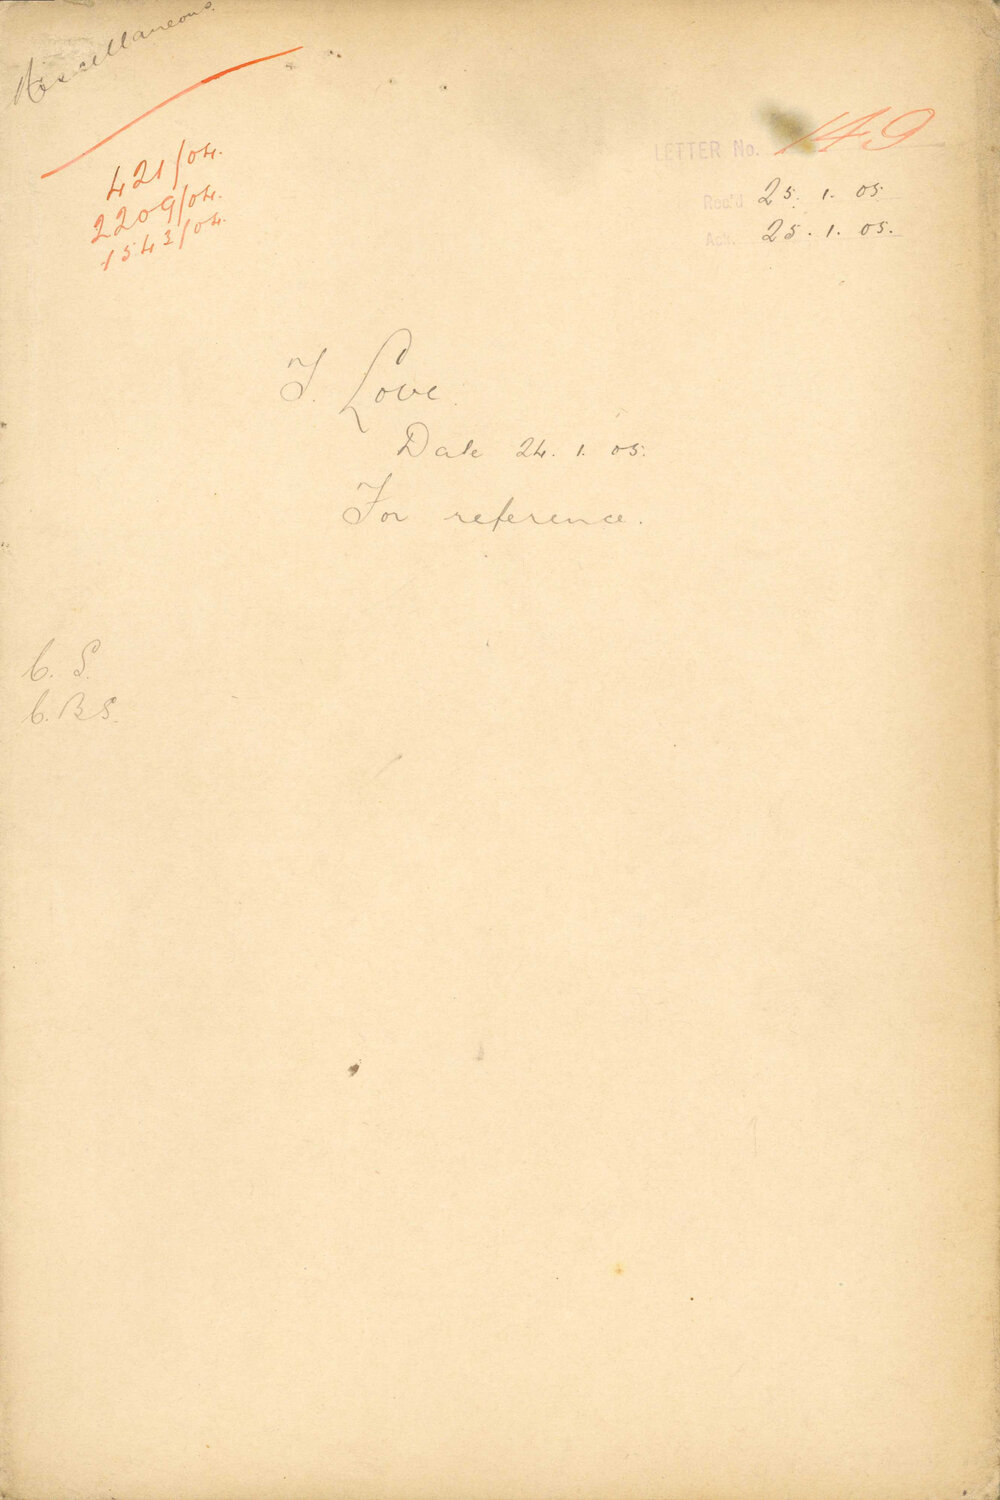 Miscellaneous.
421/04.
2209/04.
1543/04.
LETTER No. 149
Rec'd 25. 1. 05
Ack. 25. 1. 05.
T. Love.
Date 24. 1. 05.
For reference.
C. S.
C. B. S.